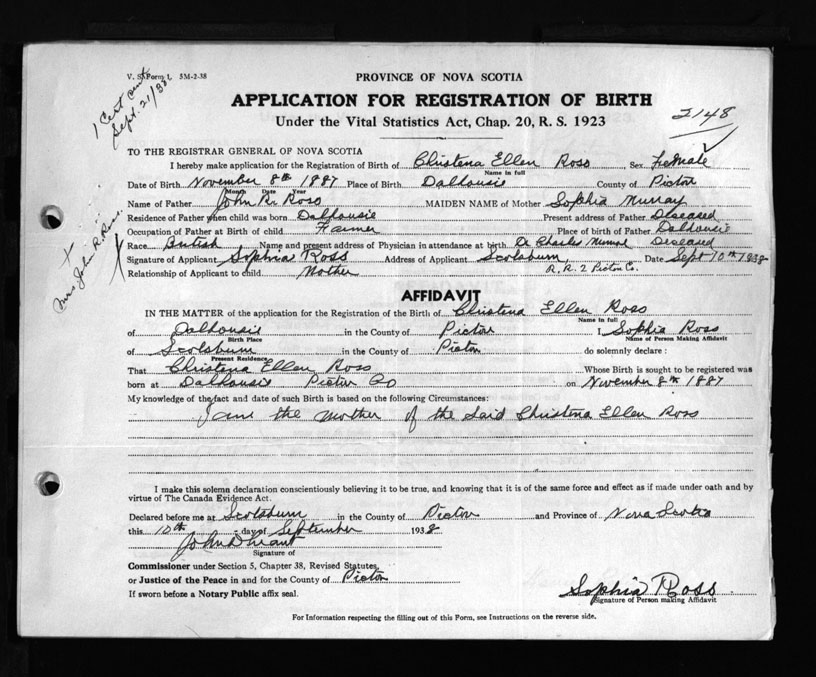 V. S. Form 1. 5M-2-38
1 Cert sent
Sept. 21/38
PROVINCE OF NOVA SCOTIA
APPLICATION FOR REGISTRATION OF BIRTH
2148
Under the Vital Statistics Act, Chap. 20, R. S. 1923
TO THE REGISTRAR GENERAL OF NOVA SCOTIA
I hereby make application for the Registration of Birth of Christena Ellen Ross Sex Female
Name in full
Date of Birth November 8th 1887 Place of Birth Dalhousie County of Pictou
Month Date Year
Name of Father John R. Ross MAIDEN NAME of Mother Sophia Murray
Residence of Father when child was born Dalhousie Present address of Father Deseased
Occupation of Father at Birth of child Farmer Place of birth of Father Dalhousie
Race British Name and present address of Physician in attendance at birth Dr Charles Deseased
Signature of Applicant Sophia Ross Address of Applicant Scotsburn Date Sept 10th 1938
R.R. 2 Pictou Co.
Relationship of Applicant to child Mother
Mrs John R. Ross
AFFIDAVIT
IN THE MATTER of the application for the Registration of the Birth of Christena Ellen Ross
Name in full
of Dalhousie in the County of Pictou I, Sophia Ross
Birth Place Name of Person Making Affidavit
of Scotsburn in the County of Pictou do solemnly declare :
Present Residence
That Christena Ellen Ross Whose Birth is sought to be registered was
born at Dalhousie Pictou Co on November 8th 1887
My knowledge of the fact and date of such Birth is based on the following Circumstances:
I am the Mother of the Said Christena Ellen Ross
I make this solemn declaration conscientiously believing it to be true, and knowing that it is of the same force and effect as if made under oath and by
virtue of The Canada Evidence Act.
Declared before me at Scotsburn in the County of Pictou and Province of Nova Scotia
this 10th day of September 1938
John
Signature of
Commissioner under Section 5, Chapter 38, Revised Statutes,
or Justice of the Peace in and for the County of Pictou
If sworn before a Notary Public affix seal.
Sophia Ross
Signature of Person making Affidavit
For Information respecting the filling out of this Form, see Instructions on the reverse side.